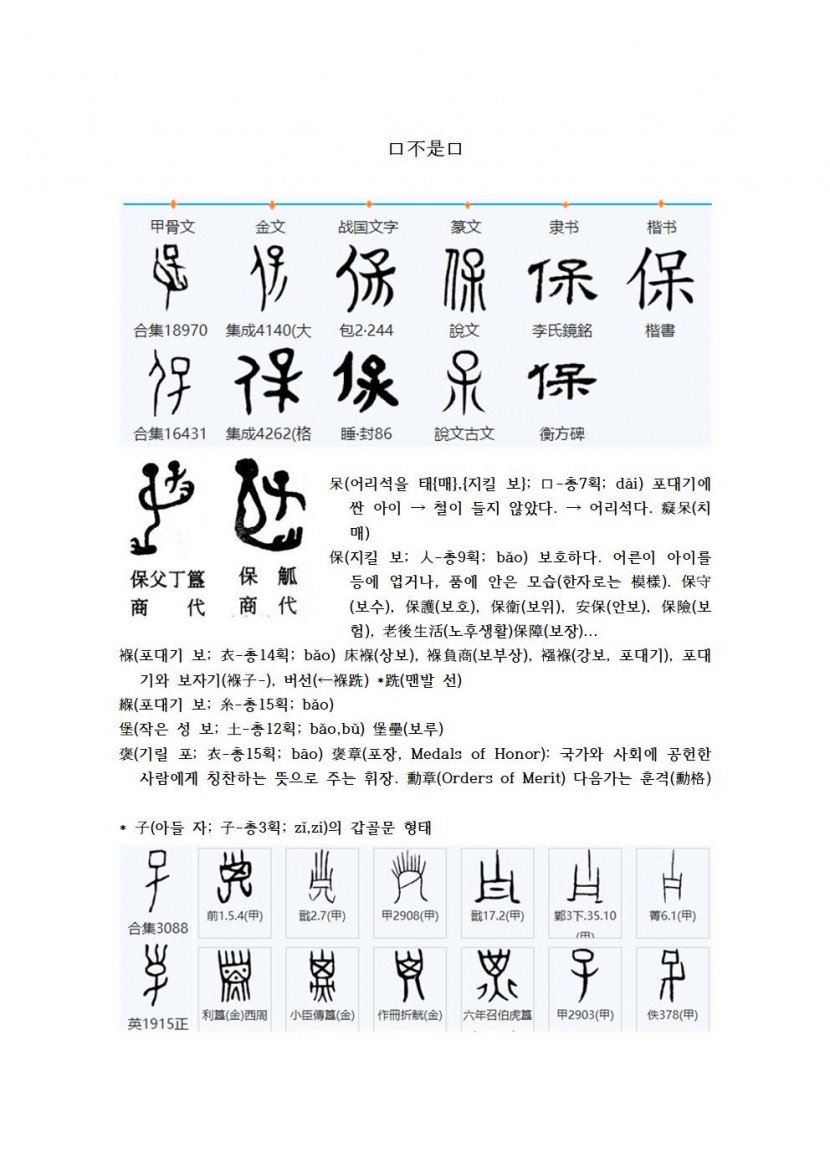 口不是口
甲骨文 金文 战国文字 篆文 隶书 楷书
保
合集18970 集成4140(大 包2·244 說文 李氏鏡銘 楷書
合集16431 集成4262(格 睡·封86 說文古文 衡方碑
保父丁簋 保 觚
商 代 商 代
呆(어리석을 태{매},{지킬 보}; 口-총7획; dāi) 포대기에
싼 아이 → 철이 들지 않았다. → 어리석다. 癡呆(치
매)
保(지킬 보; 人-총9획; bǎo) 보호하다. 어른이 아이를
등에 업거나, 품에 안은 모습(한자로는 模樣). 保守
(보수), 保護(보호), 保衛(보위), 安保(안보), 保險(보
험), 老後生活(노후생활)保障(보장)...
褓(포대기 보; 衣-총14획; bǎo) 床褓(상보), 褓負商(보부상), 襁褓(강보, 포대기), 포대
기와 보자기(褓子-), 버선(←褓跣) *跣(맨발 선)
緥(포대기 보; 糸-총15획; bǎo)
堡(작은 성 보; 土-총12획; bǎo,bǔ) 堡壘(보루)
褒(기릴 포; 衣-총15획; bāo) 褒章(포장, Medals of Honor): 국가와 사회에 공헌한
사람에게 칭찬하는 뜻으로 주는 휘장. 勳章(Orders of Merit) 다음가는 훈격(勳格)
* 子(아들 자; 子-총3획; zǐ,zi)의 갑골문 형태
合集3088 前1.5.4(甲) 戩2.7(甲) 甲2908(甲) 戩17.2(甲) 鄴3下.35.10 菁6.1(甲)
(甲)
英1915正 利簋(金)西周 小臣傳簋(金) 作冊折觥(金) 六年召伯虎簋 甲2903(甲) 佚378(甲)